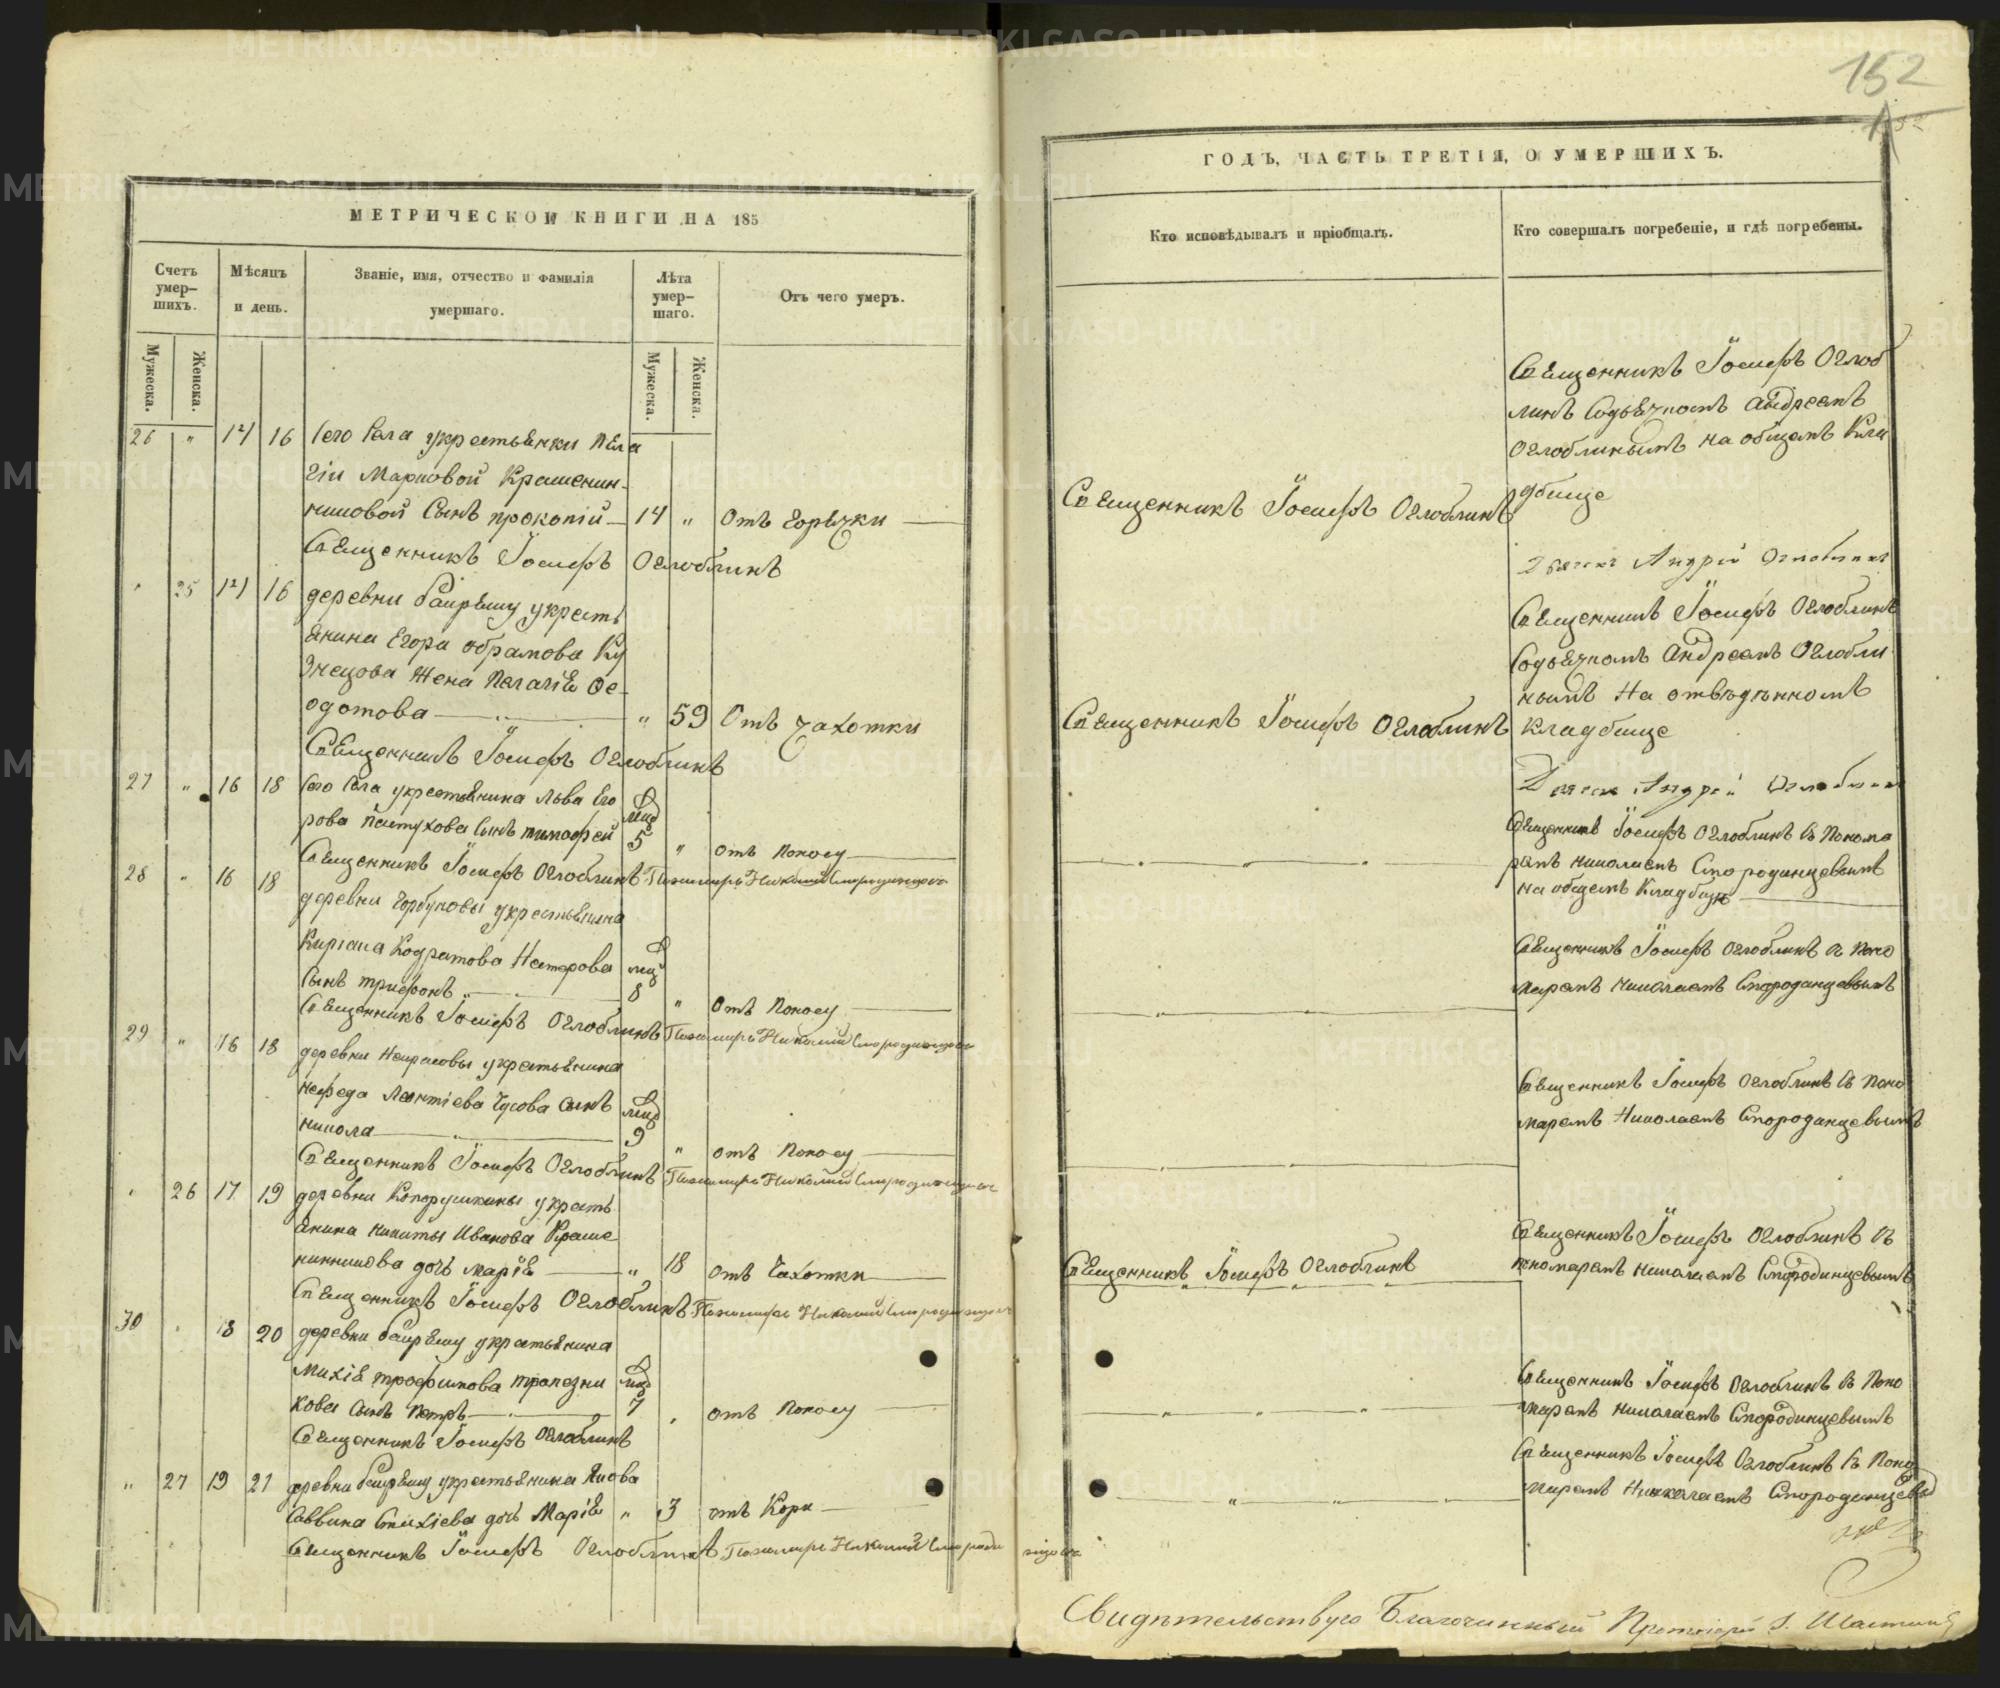 МЕТРИЧЕСКОЙ КНИГИ НА 185
Счетъ умер-шихъ.
Мѣсяцъ и день.
Званіе, имя, отчество и фамилія умершаго.
Лѣта умер-шаго.
Отъ чего умеръ.
Мужеска.
Женска.
Мужеска.
Женска.
26 " 14 16 Сего Села у крестьянки Пела
гіи Марковой Крашенин-
никовой Сынъ прокопій — 14 " Отъ Горячки
Священникъ Іосифъ Оглоблинъ
25 14 16 деревни у кресть
янина Егора обрамова Ку
знецова Жена Пелагія Фе-
дотова — " 59 Отъ Чахотки
Священникъ Іосифъ Оглоблинъ
27 " 16 18 Сего Села у крестьянина Льва Его
рова Пастухова Сынъ тимофей 5 " отъ Поносу
Священникъ Іосифъ Оглоблинъ Пономарь Николай Смородинцовъ
28 " 16 18 деревни Горбуновы у крестьянина
Кодратова Нестерова
Сынъ трифонъ 8 " Отъ Поносу
Священникъ Іосифъ Оглоблинъ Пономарь Николай Смородинцовъ
29 " 16 18 деревни Некрасовы у крестьянина
нефеда Леонтіева Чусова Сынъ
никола 9 " отъ Поносу
Священникъ Іосифъ Оглоблинъ Пономарь Николай Смородинцовъ
26 17 19 деревни у кресть
янина никиты Иванова Краше
нинникова дочь марія — " 18 отъ Чахотки
Священникъ Іосифъ Оглоблинъ Пономарь Николай Смородинцовъ
30 18 20 деревни у крестьянина
Михія трофимова трапезни
кова Сынъ Петръ 7 отъ Поносу
Священникъ Іосифъ Оглоблинъ
" 27 19 21 деревни у крестьянина Якова
Саввина дочь Марія " 3 отъ Кори
Священникъ Іосифъ Оглоблинъ Пономарь Николай Смородинцовъ
152
ГОДЪ, ЧАСТЬ ТРЕТІЯ, О УМЕРШИХЪ.
Кто исповѣдывалъ и пріобщалъ.
Кто совершалъ погребеніе, и гдѣ погребены.
Священникъ Іосифъ Оглоб
линъ Содьячкомъ андреемъ
Оглоблинымъ на общемъ Кла
дбище
Священникъ Іосифъ Оглоблинъ
Дьячекъ Андрей Оглоблинъ
Священникъ Іосифъ Оглоблинъ
Содьячкомъ андреемъ Оглобли
нымъ На отведенномъ
Кладбище
Священникъ Іосифъ Оглоблинъ
Дьячекъ Андрей Оглоблинъ
Священникъ Іосифъ Оглоблинъ Съ Понома
ремъ николаемъ Смородинцевымъ
на общемъ Кладбище
Священникъ Іосифъ Оглоблинъ съ Поно
маремъ николаемъ Смородинцевымъ
Священникъ Іосифъ Оглоблинъ Съ Поно
маремъ Николаемъ Смородинцевымъ
Священникъ Іосифъ Оглоблинъ съ
пономаремъ николаемъ Смородинцевымъ
Священникъ Іосифъ Оглоблинъ
Священникъ Іосифъ Оглоблинъ Съ Поно
маремъ николаемъ Смородинцевымъ
Священникъ Іосифъ Оглоблинъ Съ Поно
маремъ Николаемъ Смородинцевы
Свидѣтельствую Благочинный Протоіерей
METRIKI.GASO-URAL.RU